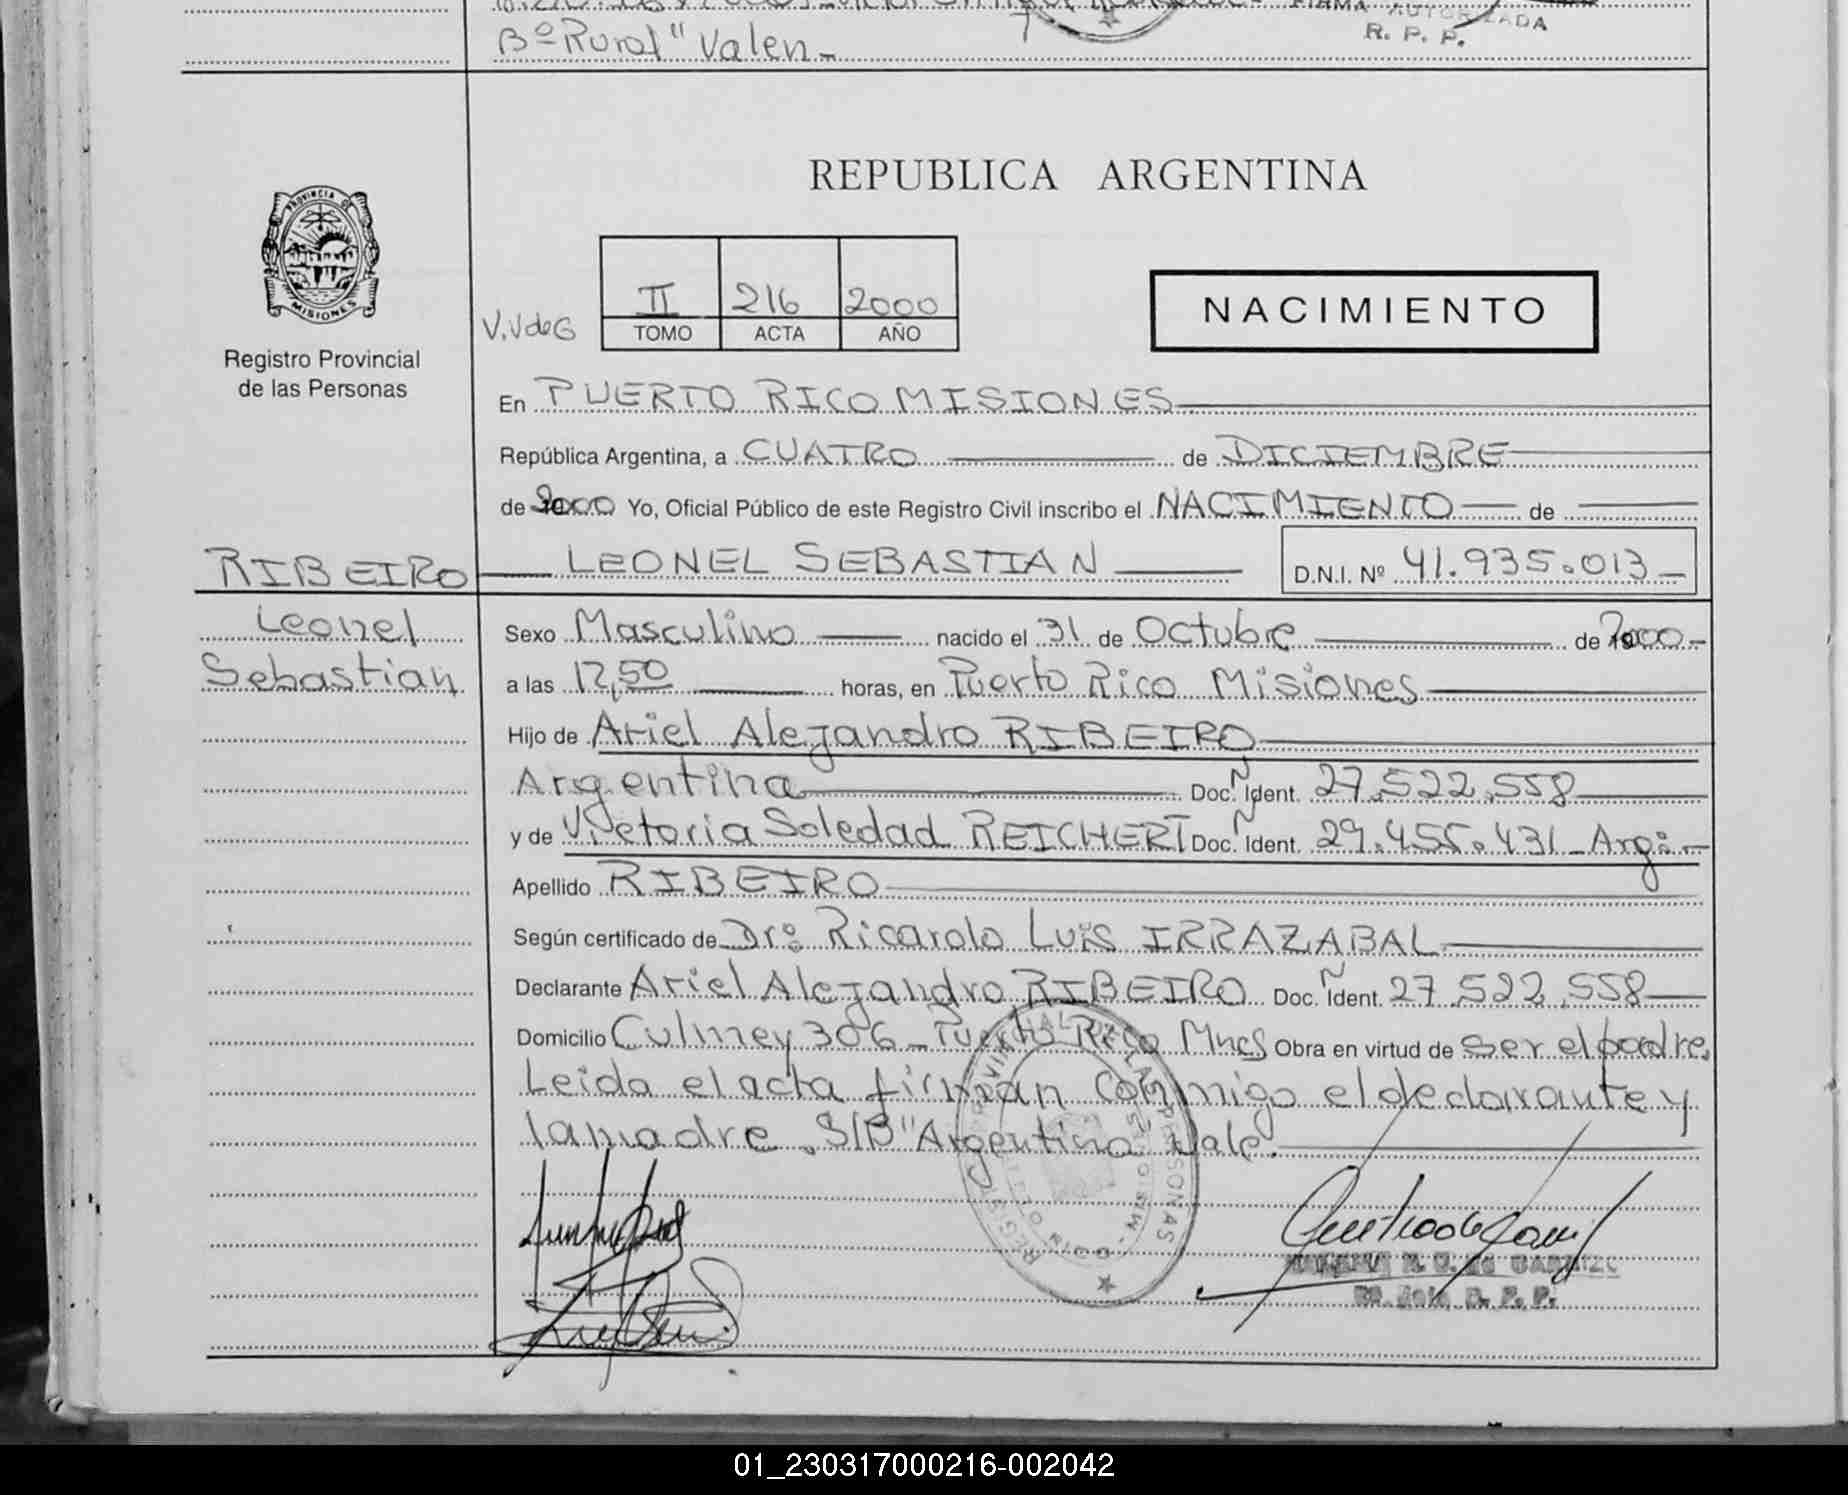 Bº Rural" Valen-
FIRMA AUTORIZADA
R. P. P.
REPUBLICA ARGENTINA
PROVINCIA DE
MISIONES
Registro Provincial
de las Personas
V.V de G
II 216 2000
TOMO ACTA AÑO
NACIMIENTO
En PUERTO RICO MISIONES
República Argentina, a CUATRO de DICIEMBRE
de 2000 Yo, Oficial Público de este Registro Civil inscribo el NACIMIENTO de
RIBEIRO
Leonel
Sebastian
LEONEL SEBASTIAN D.N.I. Nº 41.935.013-
Sexo Masculino nacido el 31 de Octubre de 2000-
a las 12,50 horas, en Puerto Rico Misiones
Hijo de Ariel Alejandro RIBEIRO
Argentina Doc. N Ident. 27.522.558
y de Victoria Soledad REICHERT Doc. N Ident. 29.455.431-Arg:-
Apellido RIBEIRO
Según certificado de Dr: Ricardo Luis IRRAZABAL
Declarante Ariel Alejandro RIBEIRO Doc. N Ident. 27.522.558
Domicilio Culmey 306-Puerto Rico Mnes Obra en virtud de ser el padre.
Leida el acta firman conmigo el declarante y
la madre. S/B "Argentina" Vale.
R. P. P.
01_230317000216-002042